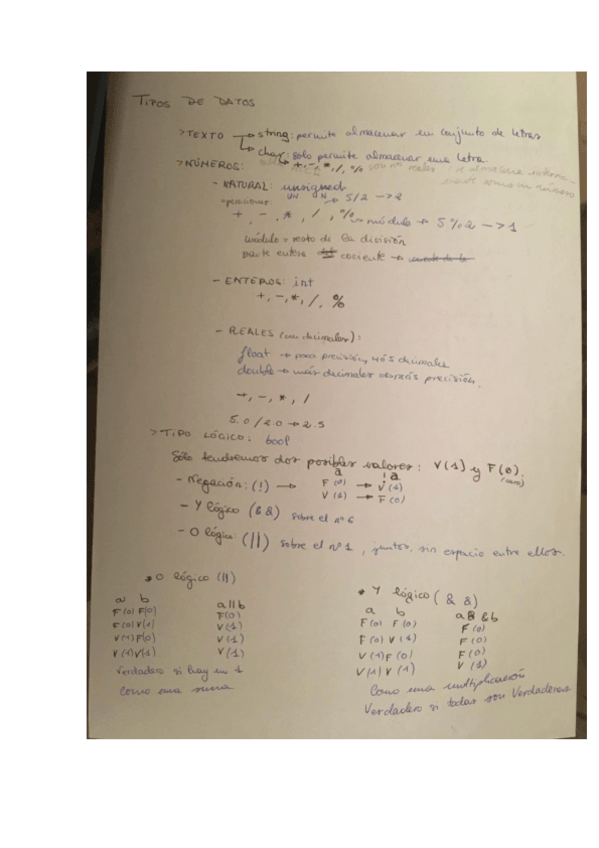 TIPOS DE DATOS
>TEXTO → string: permite almacenar un conjunto de letras
↳ char: solo permite almacenar una letra.
>NÚMEROS: +, -, *, /, % son nos reales se almacena
- NATURAL: unsigned
operaciones: 5/2 → 2
+, -, *, /, % → módulo → 5%2 → 1
módulo = resto de la división
parte entera cociente →
- ENTEROS: int
+, -, *, /, %
- REALES (con decimales):
float → poca precisión, 4 ó 5 decimales
double → más decimales precisión.
+, -, *, /
5.0/2.0 → 2.5
>TIPO LÓGICO: bool
Sólo tendremos dos posibles valores: V(1) y F(0).
(cero)
a !a
- Negación: (!) → F(0) → V(1)
V(1) → F(0)
- Y lógico (&&) sobre el nº 6
- O lógico (||) sobre el nº 1, juntos, sin espacio entre ellos.
• O lógico (||)
a b a||b
F(0) F(0) F(0)
F(0) V(1) V(1)
V(1) F(0) V(1)
V(1) V(1) V(1)
Verdadero si hay un 1
Como una suma
• Y lógico (&&)
a b a&&b
F(0) F(0) F(0)
F(0) V(1) F(0)
V(1) F(0) F(0)
V(1) V(1) V(1)
Como una multiplicación
Verdadero si todas son Verdaderas